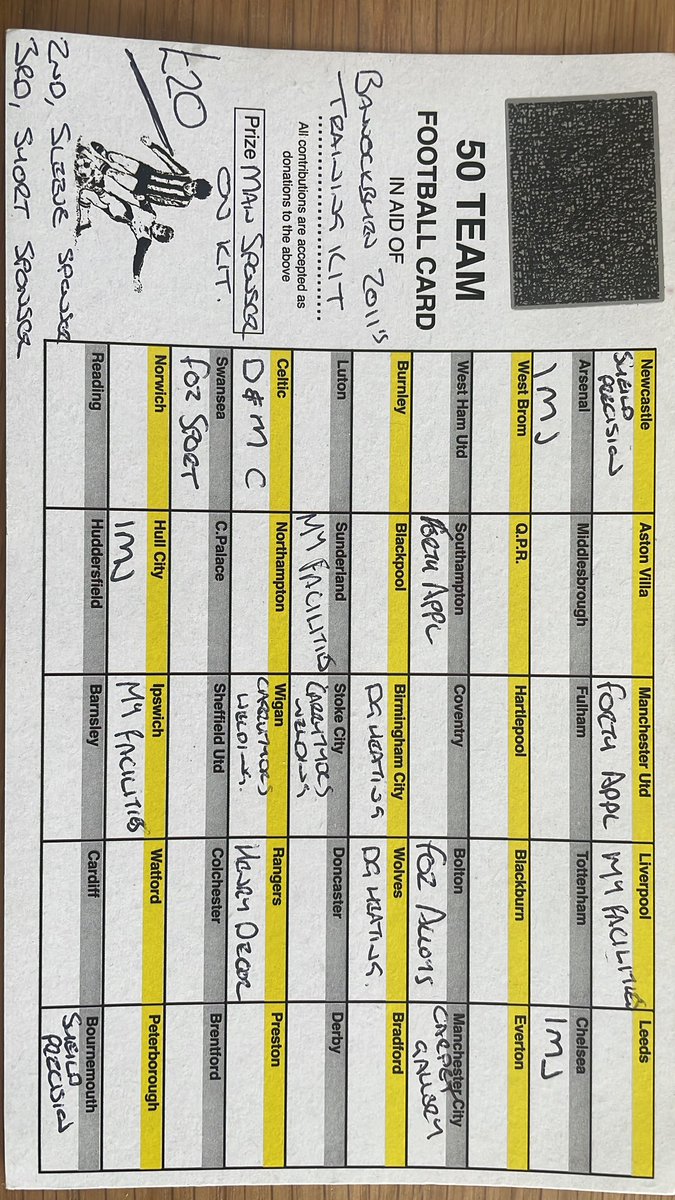 50 TEAM
FOOTBALL CARD
IN AID OF
BANOCKBURN 2011's
TRAINING KIT
All contributions are accepted as
donations to the above
Prize MAN SPONSOR
ON KIT.
£20
2ND, SLEEVE SPONSOR
3RD, SHORT SPONSOR
Newcastle Aston Villa Manchester Utd Liverpool Leeds
SHEILD PRECISION FORTH APPL MY FACILITIES
Arsenal Middlesbrough Fulham Tottenham Chelsea
IMJ IMJ
West Brom Q.P.R. Hartlepool Blackburn Everton
West Ham Utd Southampton Coventry Bolton Manchester City
FORTH APPL FOZ ALLOYS CARPET GALLERY
Burnley Blackpool Birmingham City Wolves Bradford
DG HEATING DG HEATING.
Luton Sunderland Stoke City Doncaster Derby
MY FACILITIES CARRUTHERS WELDING
Celtic Northampton Wigan Rangers Preston
D & M C CARRUTHERS WELDING. HENRY DECOR
Swansea C.Palace Sheffield Utd Colchester Brentford
FOZ SPORT
Norwich Hull City Ipswich Watford Peterborough
IMJ MY FACILITIES
Reading Huddersfield Barnsley Cardiff Bournemouth
SHEILD PRECISION